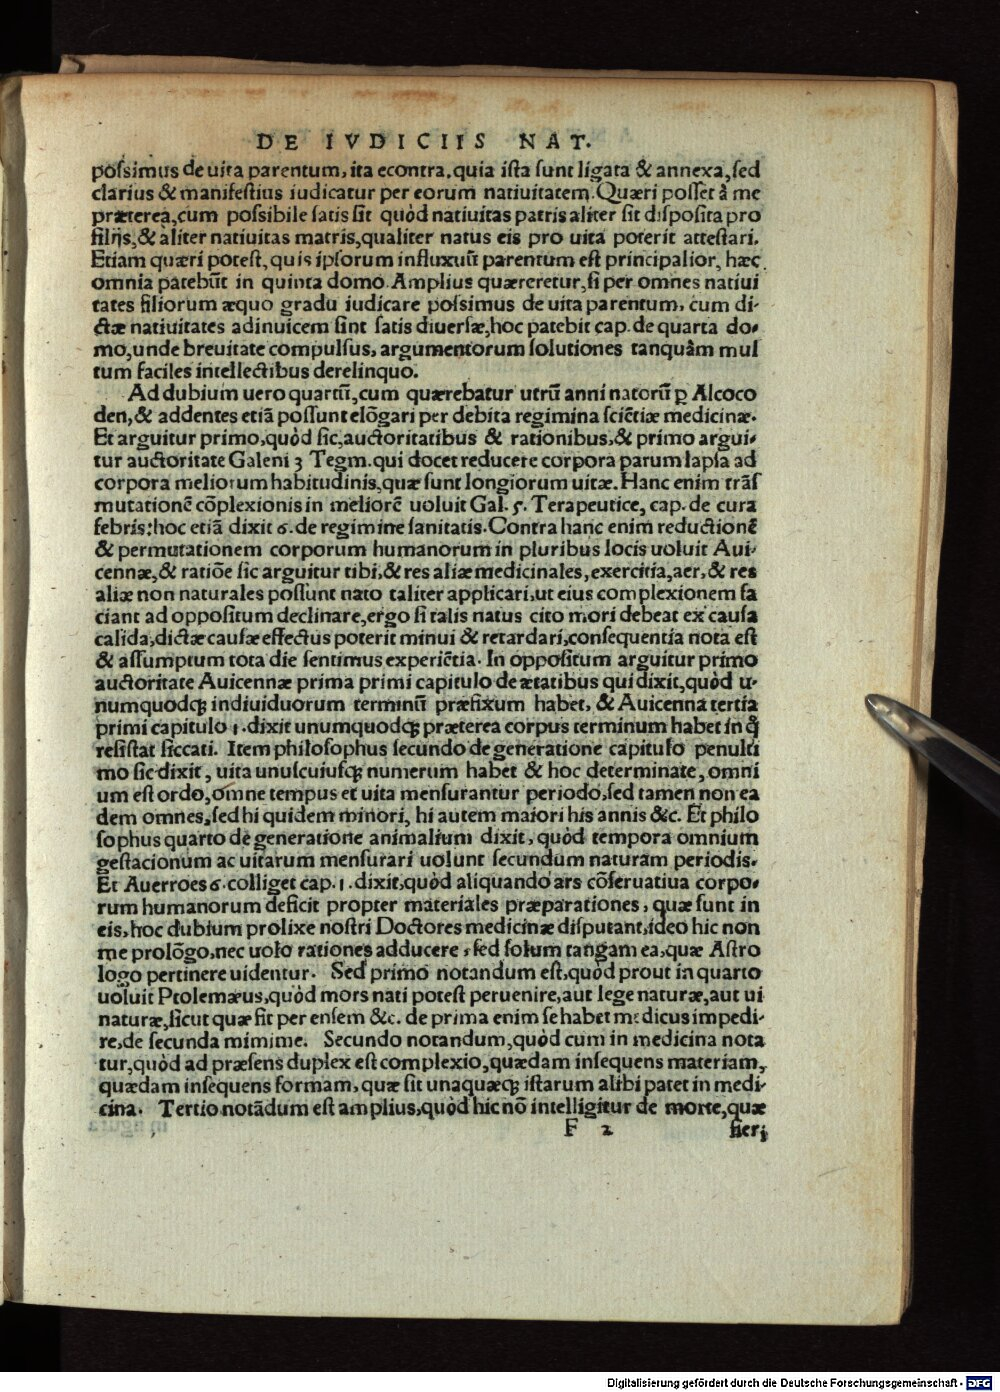 DE IVDICIIS NAT.
poſsimus de uita parentum, ita econtra, quia iſta ſunt ligata & annexa, ſed
clarius & manifeſtius iudicatur per eorum natiuitatem. Quæri poſſet à me
præterea, cum poſsibile ſatis ſit quòd natiuitas patris aliter ſit diſpoſita pro
filijs, & aliter natiuitas matris, qualiter natus eis pro uita poterit atteſtari.
Etiam quæri poteſt, quis ipſorum influxuũ parentum eſt principalior, hæc
omnia patebũt in quinta domo. Amplius quæreretur, ſi per omnes natiui
tates filiorum æquo gradu iudicare poſsimus de uita parentum, cum di-
ctæ natiuitates adinuicem ſint ſatis diuerſæ, hoc patebit cap. de quarta do-
mo, unde breuitate compulſus, argumentorum ſolutiones tanquàm mul
tum faciles intellectibus derelinquo.
Ad dubium uero quartũ, cum quærebatur utrũ anni natorũ ꝑ Alcoco
den, & addentes etiã poſſunt elõgari per debita regimina ſciẽtiæ medicinæ.
Et arguitur primo, quòd ſic, auctoritatibus & rationibus, & primo argui-
tur auctoritate Galeni 3 Tegm. qui docet reducere corpora parum lapſa ad
corpora meliorum habitudinis, quæ ſunt longiorum uitæ. Hanc enim trãſ
mutationẽ cõplexionis in meliorẽ uoluit Gal. 5. Terapeutice, cap. de cura
febris: hoc etiã dixit 6. de regimine ſanitatis. Contra hanc enim reductionẽ
& permutationem corporum humanorum in pluribus locis uoluit Aui-
cennæ, & ratiõe ſic arguitur tibi, & res aliæ medicinales, exercitia, aer, & res
aliæ non naturales poſſunt nato taliter applicari, ut eius complexionem fa
ciant ad oppoſitum declinare, ergo ſi talis natus cito mori debeat ex cauſa
calida, dictæ cauſæ effectus poterit minui & retardari, conſequentia nota eſt
& aſſumptum tota die ſentimus experiẽtia. In oppoſitum arguitur primo
auctoritate Auicennæ prima primi capitulo de ætatibus qui dixit, quòd u-
numquodqꝫ indiuiduorum terminũ præfixum habet, & Auicenna tertia
primi capitulo 1. dixit unumquodqꝫ præterea corpus terminum habet in q̃
reſiſtat ſiccati. Item philoſophus ſecundo de generatione capitulo penulti
mo ſic dixit, uita unuſcuiuſqꝫ numerum habet & hoc determinate, omni
um eſt ordo, omne tempus et uita menſurantur periodo, ſed tamen non ea
dem omnes, ſed hi quidem minori, hi autem maiori his annis &c. Et philo
ſophus quarto de generatione animalium dixit, quòd tempora omnium
geſtacionum ac uitarum menſurari uolunt ſecundum naturam periodis.
Et Auerroes 6. colliget cap. 1. dixit, quòd aliquando ars cõſeruatiua corpo-
rum humanorum deficit propter materiales præparationes, quæ ſunt in
eis, hoc dubium prolixe noſtri Doctores medicinæ diſputant, ideo hic non
me prolõgo, nec uolo rationes adducere, ſed ſolum tangam ea, quæ Aſtro
logo pertinere uidentur. Sed primo notandum eſt, quòd prout in quarto
uoluit Ptolemæus, quòd mors nati poteſt peruenire, aut lege naturæ, aut ui
naturæ, ſicut quæ fit per enſem &c. de prima enim ſe habet medicus impedi-
re, de ſecunda mimime. Secundo notandum, quòd cum in medicina nota
tur, quòd ad præſens duplex eſt complexio, quædam inſequens materiam,
quædam inſequens formam, quæ ſit unaquæqꝫ iſtarum alibi patet in medi-
cina. Tertio notãdum eſt amplius, quòd hic nõ intelligitur de morte, quæ
F 2 fieri
Digitalisierung gefördert durch die Deutsche Forschungsgemeinschaft - DFG